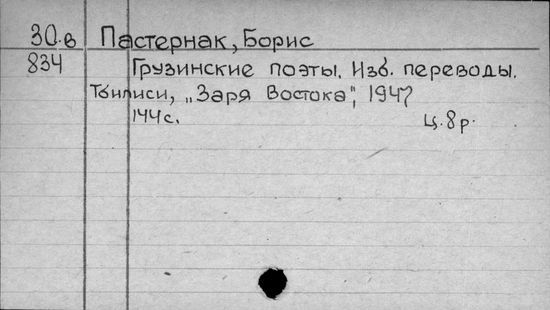 30.в Пастернак, Борис
834 Грузинские поэты. Изб. переводы.
Тбилиси, „Заря Востока", 1947
144 с. Ц. 8 р.